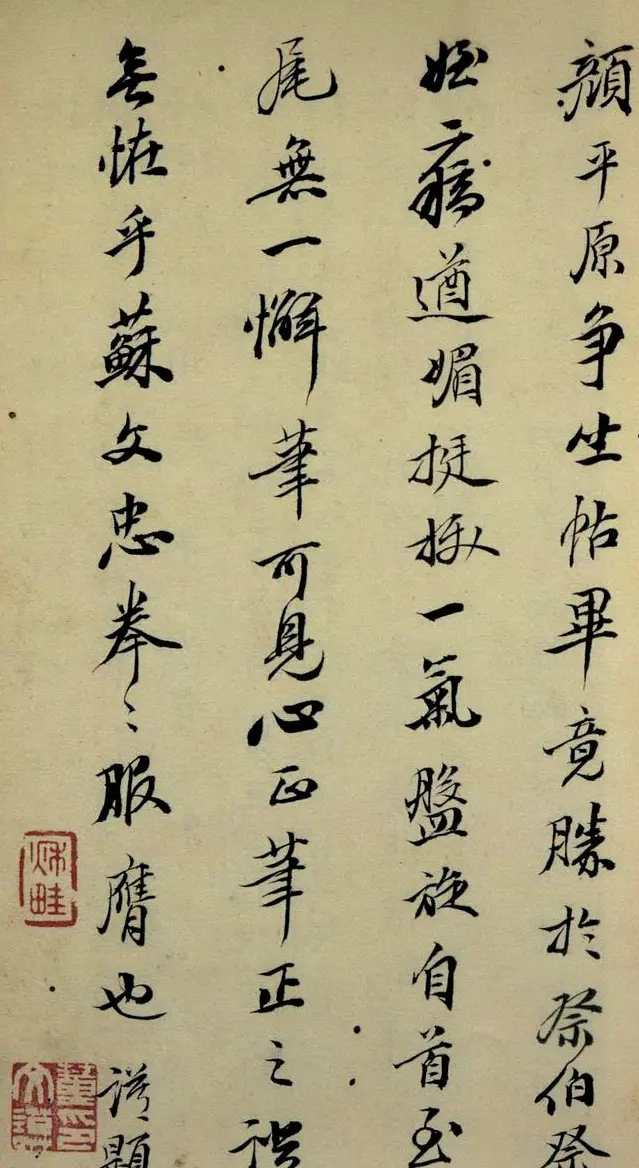 顏平原争坐帖畢竟勝於祭伯祭
姪藁遒媚挺拔一氣盤旋自首至
尾無一懈筆可見心正筆正之説
無恠乎蘇文忠拳〻服膺也 誥題